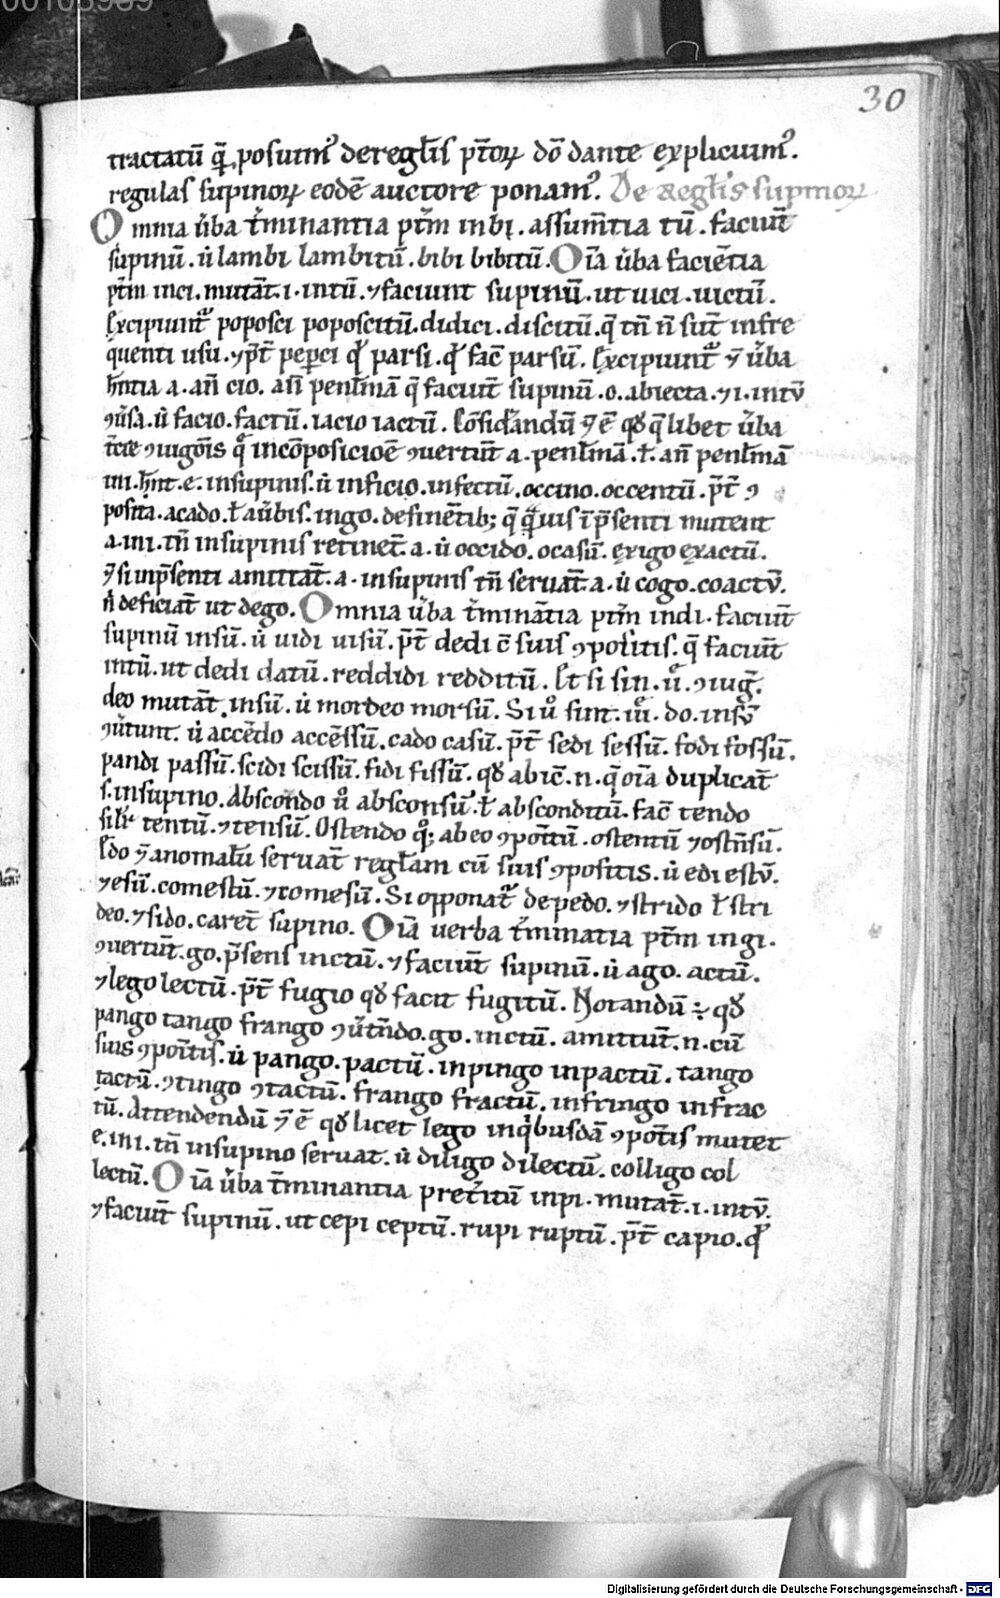 00103989
30
tractatū q̄ posuim᷒ de regłis p̄toꝝ dō dante explicuim᷒.
regulas supinoꝝ eodē auctore ponam᷒. De Regłis supinoꝝ
Omnia ůba t̄minantia p̄tm in bi. assum̄tia tū. faciūt
supinū. ů lambi lambitū. bibi bibitū. Oīa ůba faciētia
p̄tm in ci. mutāt. i. in tū. ⁊ faciunt supinū. ut uici. uictū.
Excipiunt᷒ poposci poposcitū. didici. discitū. q̄ tn̄ n̄ sūt in fre
quenti usu. ⁊ p̄t peperci qđ parsi. qđ fac̄ parsū. Excipiunt᷒ ⁊ ůba
hn̄tia a. an̄ cio. an̄ penłmā q̄ faciūt supinū. o. abiecta. ⁊ i. in tū
ꝯůsa. ů facio. factū. iacio iactū. Cōsidandū ⁊ ē qđ q̄libet ůba
t̄cie ꝯiugōis q̄ in cōposicioē ꝯuertūt a. penłmā. ł. an̄ penłmā
in i. hn̄t. e. in supinis. ů inficio. infectū. occino. occentū. p̄t ꝯ
posita. a cado. ł a ůbis. in go. desinētib; q̄ quis ī p̄senti mutent
a. in i. tn̄ in supinis retinēt. a. ů occido. ocasū. exigo exactū.
⁊ si in p̄senti amittāt. a. in supinis tn̄ seruāt. a. ů cogo. coactū.
n̄ deficiāt ut dego. Omnia ůba t̄minātia p̄tm in di. faciūt
supinū in sū. ů uidi uisū. p̄t dedi c̄ suis ꝯpositis. q̄ faciūt
in tū. ut dedi datū. reddidi redditū. Et si sin. ů. ꝯiug̃.
deo mutāt. in sū. ů mordeo morsū. Si ů sint. iii. do. in sū
ꝯůtunt. ů accedo accessū. cado casū. p̄t sedi sessū. fodi fossū.
pandi passū. scidi scissū. fidi fissū. qđ abic̄. n. q̄ oīa duplicāt
s. in supino. Abscondo ů absconsū. ł absconditū. fac̄ tendo
silr tentū. ⁊ tensū. Ostendo q; ab eo ꝯpoītū. ostentū ⁊ ostn̄sū.
Edo ⁊ anomalū seruāt regłam cū suis ꝯpositis. ů edi estū.
⁊ esū. comestū. ⁊ comesū. Si opponat᷒ de pedo. ⁊ strido ł stri
deo. ⁊ sido. caret̄ supino. Oīa uerba t̄minātia p̄tm in gi.
ꝯuertūt. go. p̄sens in ctū. ⁊ faciūt supinū. ů ago. actū.
⁊ lego lectū. p̄t fugio qđ facit fugitū. Notandū ÷ qđ
pango tango frango ꝯůtn̄do. go. in ctū. amittūt. n. cū
suis ꝯpoītis. ů pango. pactū. inpingo inpactū. tango
tactū. ꝯtingo ꝯtactū. frango fractū. infringo infrac
tū. Attendendū ⁊ ē qđ licet lego in q̇busdā ꝯpoītis mutet
e. in i. tn̄ in supino seruat. ů diligo dilectū. colligo col
lectū. Oīa ůba t̄minantia pretitū in pi. mutāt. i. in tū.
⁊ faciūt supinū. ut cepi ceptū. rupi ruptū. p̄t capio. qđ
Digitalisierung gefördert durch die Deutsche Forschungsgemeinschaft - DFG